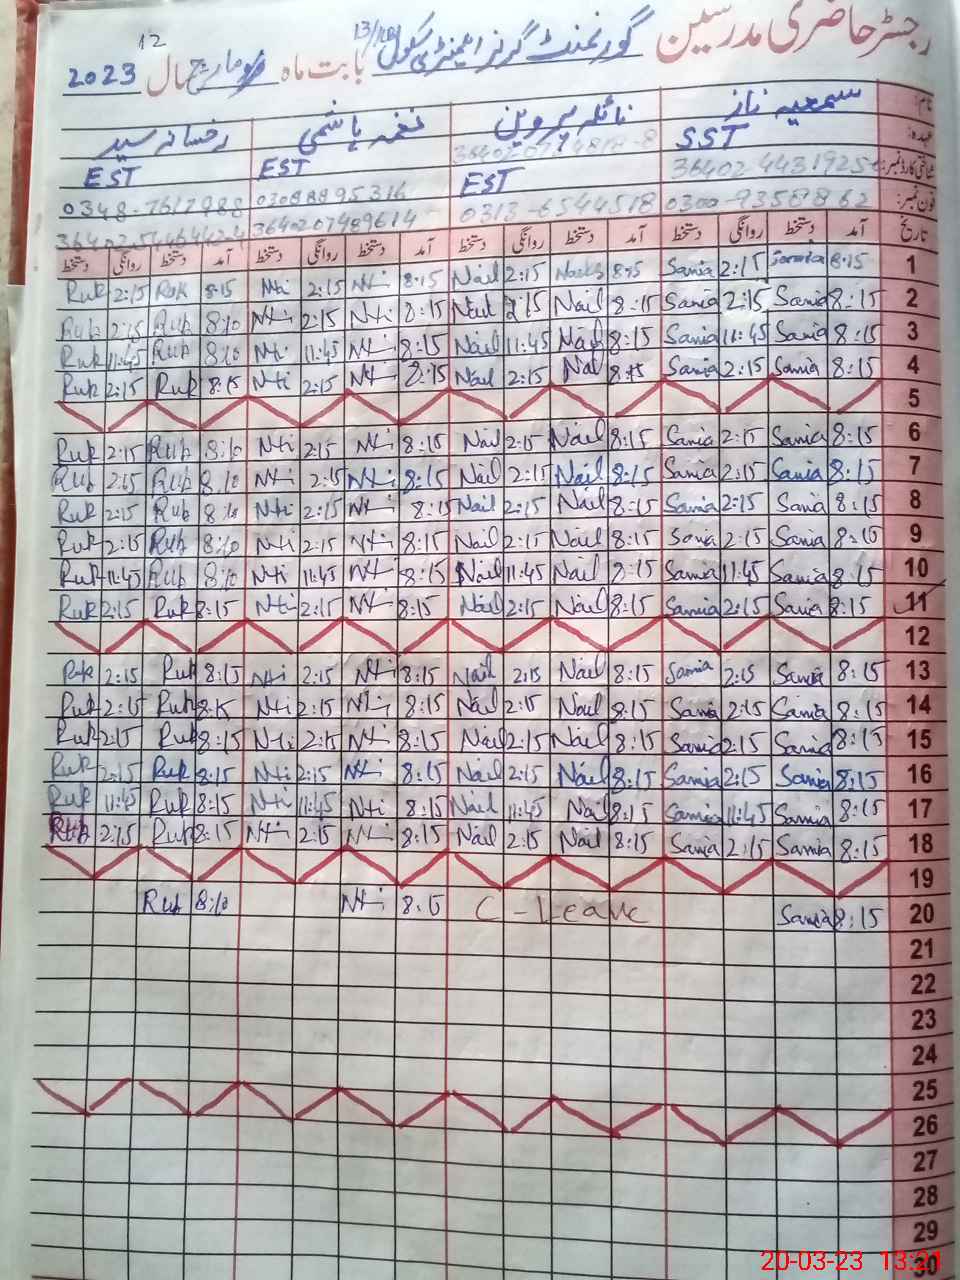 رجسٹر حاضری مدرسین گورنمنٹ گرلز ایلیمنٹری سکول بابت ماہ مارچ سال 2023
12
نام: سمعیہ ناز نائلہ پروین نغمہ ہاشمی رخسانہ سید
عہدہ: SST EST EST EST
فون نمبر: 0300-9358862 0313-6544518 03088895316 0348-7617988
تاریخ آمد دستخط روانگی دستخط آمد دستخط روانگی دستخط آمد دستخط روانگی دستخط آمد دستخط روانگی دستخط
1 8:15 Samia 2:15 Samia 8:15 2:15 Nail 8:15 Nti 2:15 Nti 8:15 Ruk 2:15 Ruk
2 8:15 Samia 2:15 Samia 8:15 Nail 2:15 Nail 8:15 Nti 2:15 Nti 8:10 Ruk 2:15 Ruk
3 8:15 Samia 11:45 Samia 8:15 Nail 11:45 Nail 8:15 Nti 11:45 Nti 8:10 Ruk 11:45 Ruk
4 8:15 Samia 2:15 Samia 8:15 Nail 2:15 Nail 8:15 Nti 2:15 Nti 8:15 Ruk 2:15 Ruk
5
6 8:15 Samia 2:15 Samia 8:15 Nail 2:15 Nail 8:15 Nti 2:15 Nti 8:10 Ruk 2:15 Ruk
7 8:15 Samia 2:15 Samia 8:15 Nail 2:15 Nail 8:15 Nti 2:15 Nti 8:10 Ruk 2:15 Ruk
8 8:15 Samia 2:15 Samia 8:15 Nail 2:15 Nail 8:15 Nti 2:15 Nti 8:10 Ruk 2:15 Ruk
9 8:15 Samia 2:15 Samia 8:15 Nail 2:15 Nail 8:15 Nti 2:15 Nti 8:10 Ruk 2:15 Ruk
10 8:15 Samia 11:45 Samia 8:15 Nail 11:45 Nail 8:15 Nti 11:45 Nti 8:10 Ruk 11:45 Ruk
11 8:15 Samia 2:15 Samia 8:15 Nail 2:15 Nail 8:15 Nti 2:15 Nti 8:15 Ruk 2:15 Ruk
12
13 8:15 Samia 2:15 Samia 8:15 Nail 2:15 Nail 8:15 Nti 2:15 Nti 8:15 Ruk 2:15 Ruk
14 8:15 Samia 2:15 Samia 8:15 Nail 2:15 Nail 8:15 Nti 2:15 Nti 8:15 Ruk 2:15 Ruk
15 8:15 Samia 2:15 Samia 8:15 Nail 2:15 Nail 8:15 Nti 2:15 Nti 8:15 Ruk 2:15 Ruk
16 8:15 Samia 2:15 Samia 8:15 Nail 2:15 Nail 8:15 Nti 2:15 Nti 8:15 Ruk 2:15 Ruk
17 8:15 Samia 11:45 Samia 8:15 Nail 11:45 Nail 8:15 Nti 11:45 Nti 8:15 Ruk 11:45 Ruk
18 8:15 Samia 2:15 Samia 8:15 Nail 2:15 Nail 8:15 Nti 2:15 Nti 8:15 Ruk 2:15 Ruk
19
20 8:15 Samia C-Leave 8:15 Nti 8:10 Ruk
21
22
23
24
25
26
27
28
29
30
20-03-23 13:21